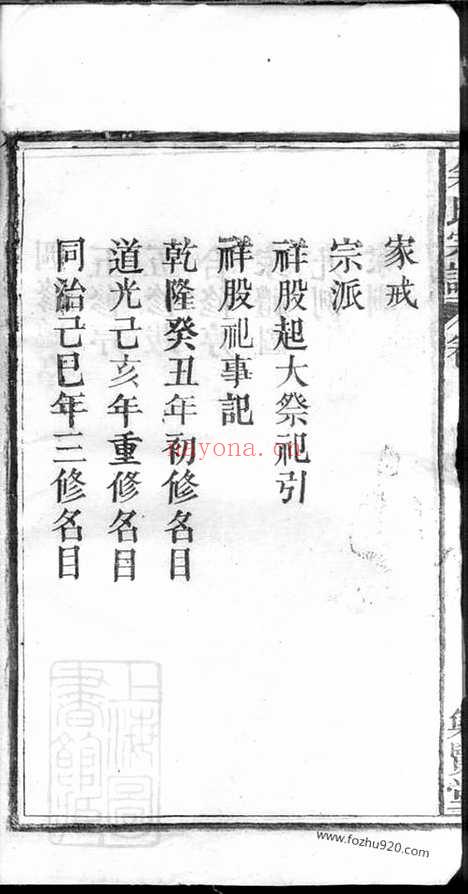 家戒
宗派
祥股起大祭祀引
祥股祀事記
乾隆癸丑年初修名目
道光己亥年重修名目
同治己巳年三修名目
nayona.cn
上海圖書館藏
www.fozhu920.com